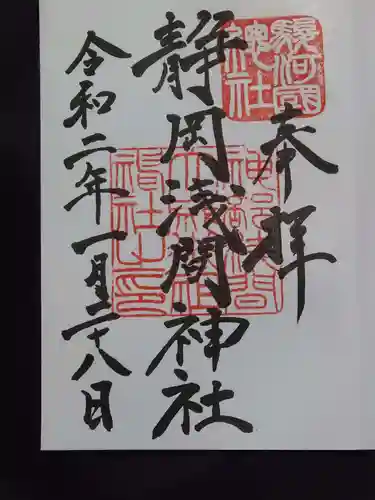 奉拝
駿河國
總社
静岡浅間神社
令和二年一月二十八日